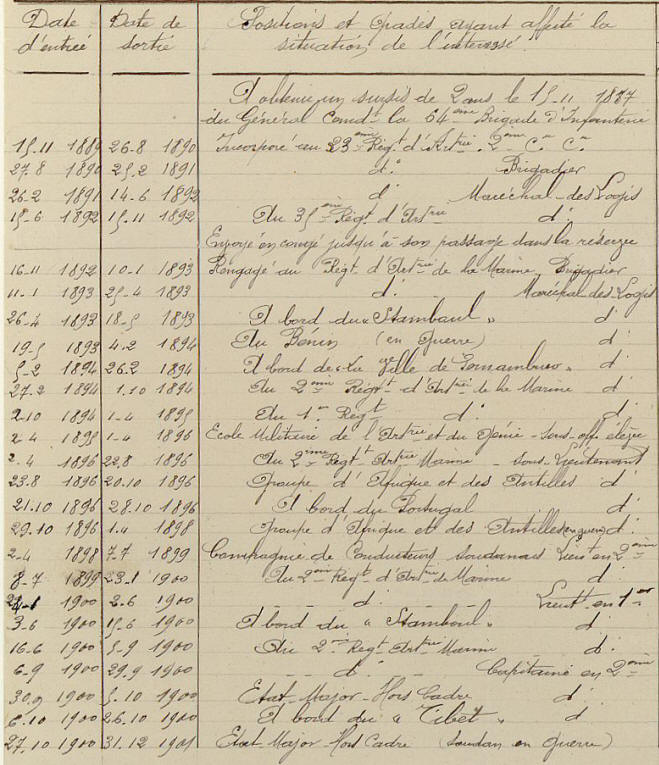 Date d'entrée Date de sortie Positions et grades ayant affecté la situation de l'intéressé.
A obtenu un sursis de 2 ans le 15-11 1887
du Général Comdt la 64ème Brigade d'Infanterie
15-11 1889 26-8 1890 Incorporé au 23ème Regt d'Artrie 2ème Cr Cr
27-8 1890 25-2 1891 d° Brigadier
26-2 1891 14-6 1892 d° Maréchal-des-Logis
15-6 1892 15-11 1892 Au 35ème Régt d'Artrie d°
Envoyé en congé jusqu'à son passage dans la réserve
16-11 1892 10-1 1893 Rengagé au Régt d'Artrie de la Marine, Brigadier
11-1 1893 25-4 1893 d° Maréchal des Logis
26-4 1893 18-5 1893 A bord du "Stamboul" d°
19-5 1893 4-2 1894 Au Bénin (en Guerre) d°
5-2 1894 26-2 1894 A bord de "La Ville de Pernambuco" d°
27-2 1894 1-10 1894 Au 2ème Régt d'Artrie de la Marine d°
2-10 1894 1-4 1895 Au 1er Régt d° d°
2-4 1895 1-4 1896 Ecole Militaire de l'Artrie et du Génie - Sous-off. élève
2-4 1896 22-8 1896 Au 2ème Régt Artrie Marine - Sous-Lieutenant
23-8 1896 20-10 1896 Groupe d'Afrique et des Antilles d°
21-10 1896 28-10 1896 A bord du Portugal d°
29-10 1896 1-4 1898 Groupe d'Afrique et des Antilles (en guerre) d°
2-4 1898 7-7 1899 Compagnie de Conducteurs soudanais Lieut en 2ème
8-7 1899 23-1 1900 Au 2ème Régt d'Artrie de Marine d°
24-1 1900 2-6 1900 d° Lieutt en 1er
3-6 1900 15-6 1900 A bord du "Stamboul" d°
16-6 1900 5-9 1900 Au 2ème Régt Artrie Marine d°
6-9 1900 29-9 1900 d° Capitaine en 2ème
30-9 1900 5-10 1900 Etat-Major-Hors Cadre d°
6-10 1900 26-10 1900 A bord du "Tibet" d°
27-10 1900 31-12 1901 Etat-Major-Hors Cadre (Soudan en guerre)